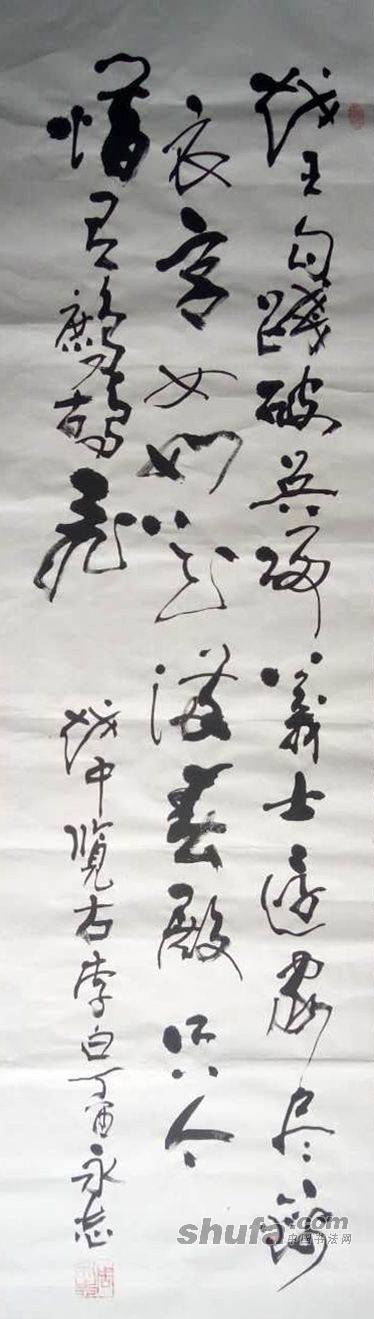 越王勾踐破吴歸義士還家尽錦
衣宫女如花满春殿只今
惟有鷓鴣飛
越中覽古李白丁酉永志
shufa.com
中国书法网